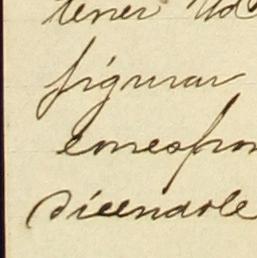 tener
figurar
correspon
diciendole